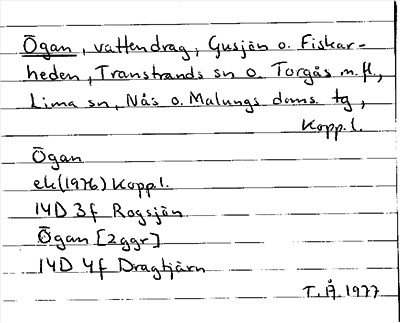 Ögan, vattendrag, Gusjön o. Fiskar-
heden, Transtrands sn o. Torgås m.fl,
Lima sn, Nås o. Malungs doms. tg,
Kopp.l.
Ögan
ek(1976) Kopp.l.
14D 3f Rogsjön
Ögan [2ggr]
14D 4f Dragtjärn
T.Å. 1977